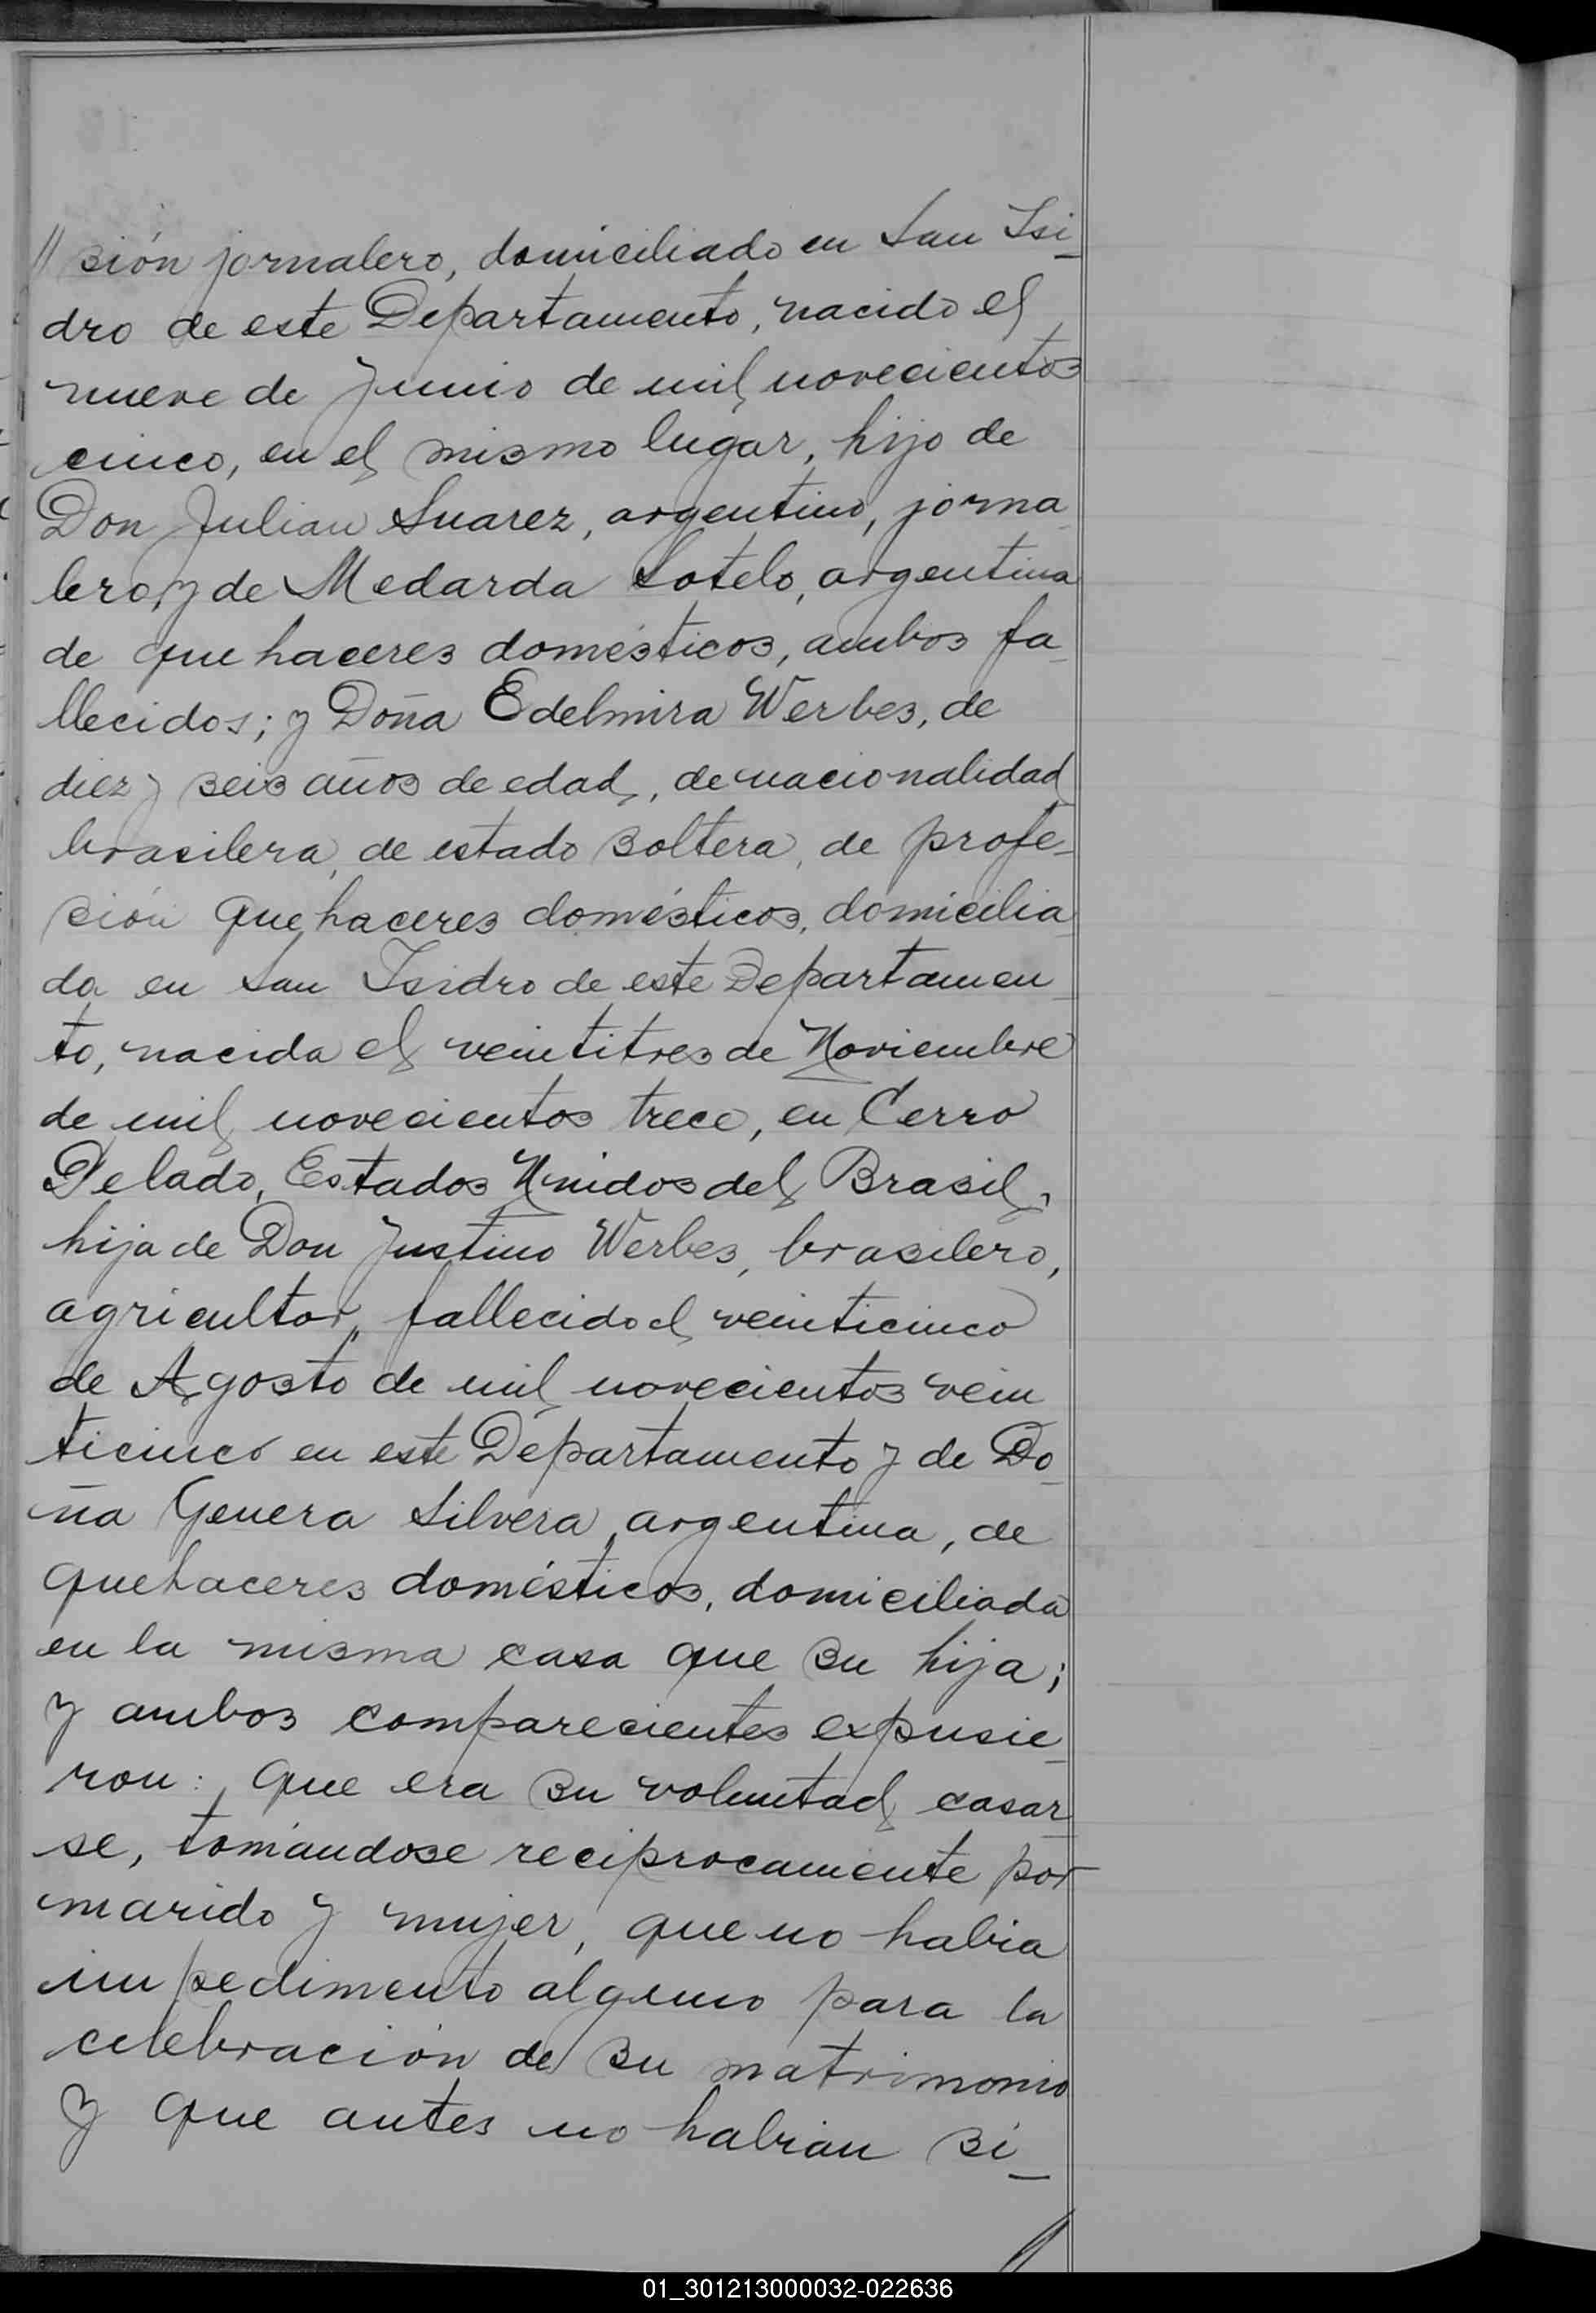 // sión jornalero, domiciliado en San Isi-
dro de este Departamento, nacido el
nueve de Junio de mil novecientos
cinco, en el mismo lugar, hijo de
Don Julian Suarez, argentino, jorna-
lero, y de Medarda Sotelo, argentina
de que haceres domésticos, ambos fa-
llecidos; y Doña Edelmira Werbes, de
diez y seis años de edad, de nacionalidad
brasilera, de estado soltera, de profe-
sión que haceres domésticos, domicilia-
da en San Isidro de este Departamen-
to, nacida el veintitres de Noviembre
de mil novecientos trece, en Cerro
Pelado, Estados Unidos del Brasil,
hija de Don Justino Werbes, brasilero,
agricultor, fallecido el veinticinco
de Agosto de mil novecientos vein
ticinco en este Departamento y de Do-
ña Genera Silvera, argentina, de
quehaceres domésticos, domiciliada
en la misma casa que su hija;
y ambos comparecientes expusie-
ron: que era su voluntad casar-
se, tomándose reciprocamente por
marido y mujer, que no habia
impedimento alguno para la
celebración de su matrimonio
y que antes no habian si-
01_301213000032-022636